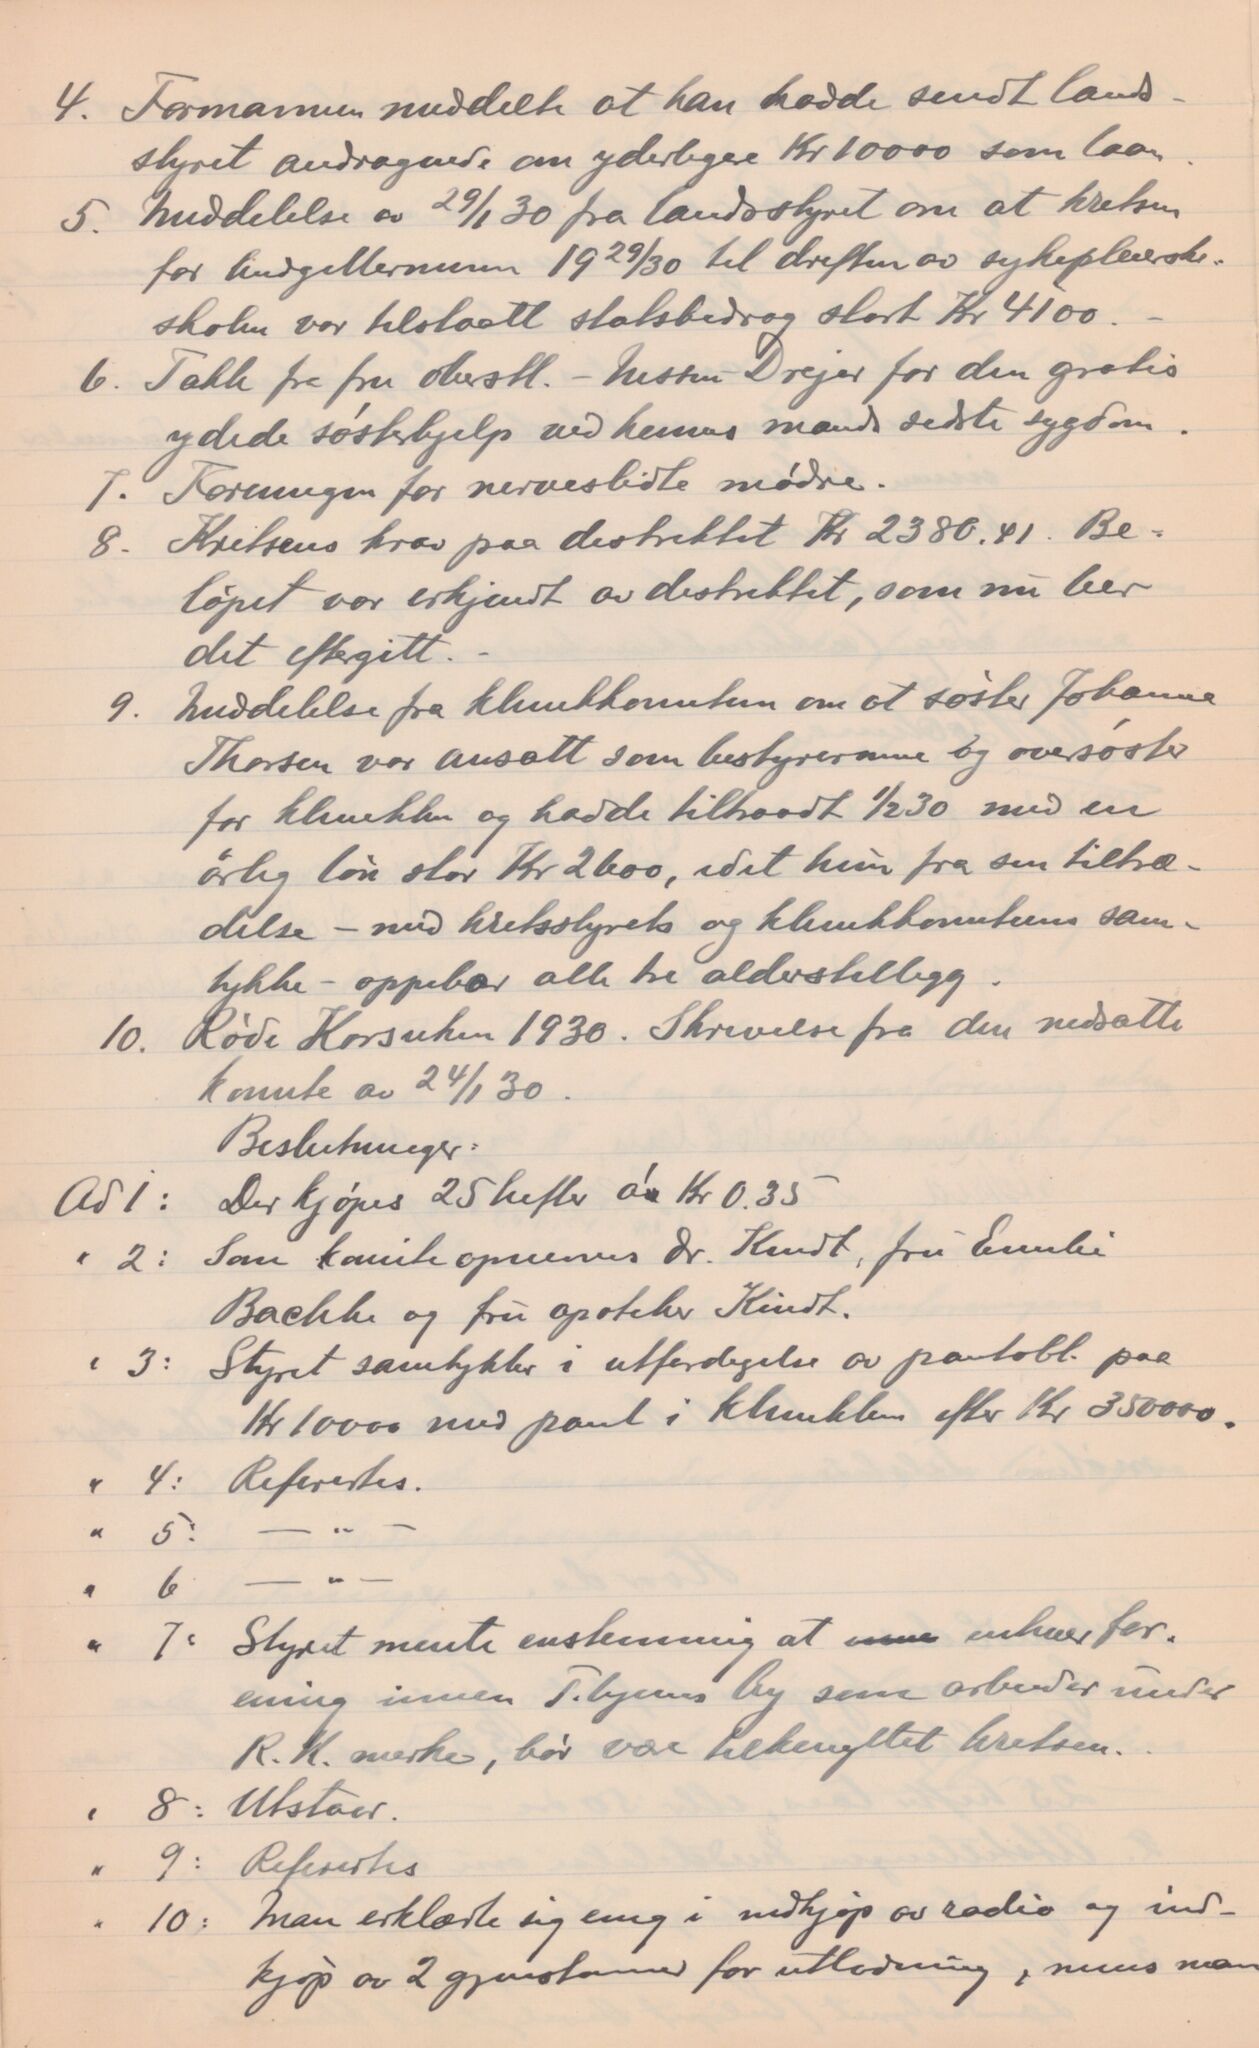 4. Formannen meddelte at han hadde sendt lands-
styret andragende om yderligere Kr 10000 som laan.
5. Meddelelse av 29/1 30 fra landsstyret om at kretsen
for budgetterminen 1929/30 til driften av sykepleierske-
skolen var tilstaatt statsbidrag stort Kr 4100. -
6. Takk fra fru oberstl. - Nissen-Drejer for den gratis
ydede søsterhjelp ved hennes mands sidste sygdom.
7. Foreningen for nerveslidte mødre.
8. Kretsens krav paa distriktet Kr 2380.41. Be-
løpet var erkjendt av distriktet, som nu ber
det eftergitt. -
9. Meddelelse fra klinikkomiteen om at søster Johanne
Thorsen var ansatt som bestyrerinne og oversøster
for klinikken og hadde tiltraadt 1/2 30 med en
årlig løn stor Kr 2600, idet hun fra sin tiltræ-
delse - med kretsstyrets og klinikkomiteens sam-
tykke - oppebær alle tre alderstillegg.
10. Røde Korsuken 1930. Skrivelse fra den nedsatte
komite av 24/1 30.
Beslutninger:
Ad 1: Der kjøpes 25 hefter á Kr 0.35
" 2: Som komite opnevnes dr. Kindt, fru Emilie
Bachke og fru apoteker Kindt.
" 3: Styret samtykker i utferdigelse av pantobl. paa
Kr 10000 med pant i klinikken efter Kr 350000.
" 4: Refereres.
" 5: — " —
" 6 — " —
" 7: Styret mente enstemmig at enhver for-
ening innen T.hjems by som arbeider under
R. K. merke, bør være tilknyttet kretsen.
" 8: Utstaar.
" 9: Refereres
" 10: Man erklærte sig enig i indkjøp av radio og ind-
kjøp av 2 gjenstander for utlodning, mens man